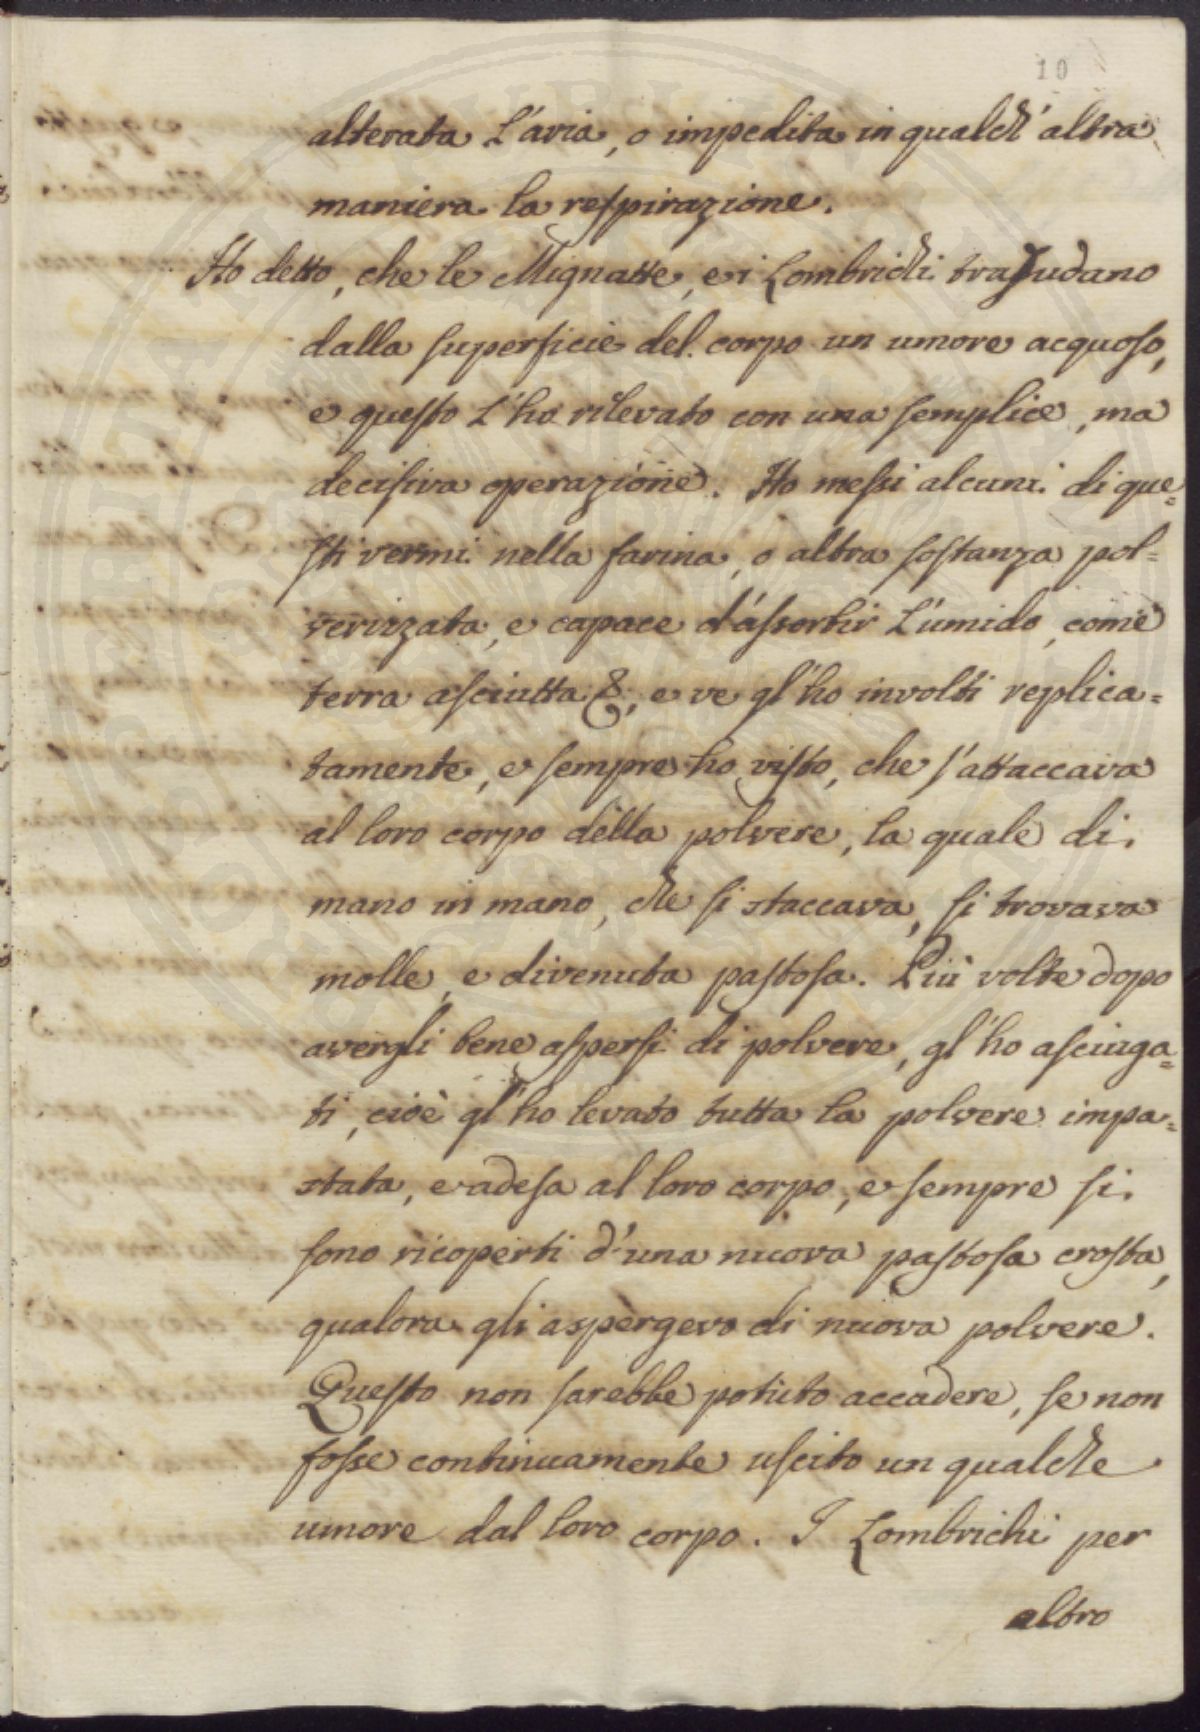 10
alterata l'aria, o impedita in qualch'altra
maniera la respirazione.
Ho detto, che le Mignatte, e i Lombrichi trasudano
dalla superficie del corpo un umore acquoso,
e questo l'ho rilevato con una semplice, ma
decisiva operazione. Ho messi alcuni di que=
sti vermi nella farina, o altra sostanza pol=
verizzata, e capace d'assortir l'umido, come
terra asciutta &, e ve gl'ho involti replica=
tamente, e sempre ho visto, che s'attaccava
al loro corpo della polvere, la quale di
mano in mano, che si staccava, si trovava
molle, e divenuta pastosa. Più volte dopo
avergli bene aspersi di polvere, gl'ho asciuga=
ti, cioè gl'ho levato tutta la polvere impa=
stata, e adesa al loro corpo, e sempre si
sono ricoperti d'una nuova pastosa crosta,
qualora gli aspergevo di nuova polvere.
Questo non sarebbe potuto accadere, se non
fosse continuamente uscito un qualche
umore dal loro corpo. I Lombrichi per
altro